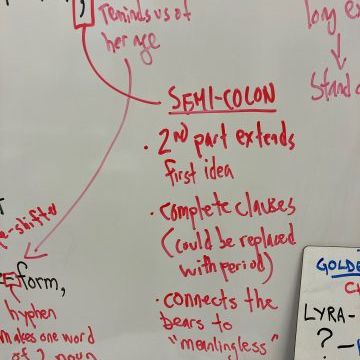 ;
Reminds us of
her age
long ex
Stand a
SEMI-COLON
• 2ND part extends
first idea
• complete clauses
(could be replaced
with period)
• connects the
bears to
"meaningless"
e-shifter
form,
hyphen
makes one word
of 2 noun
GOLDE
LYRA-
?